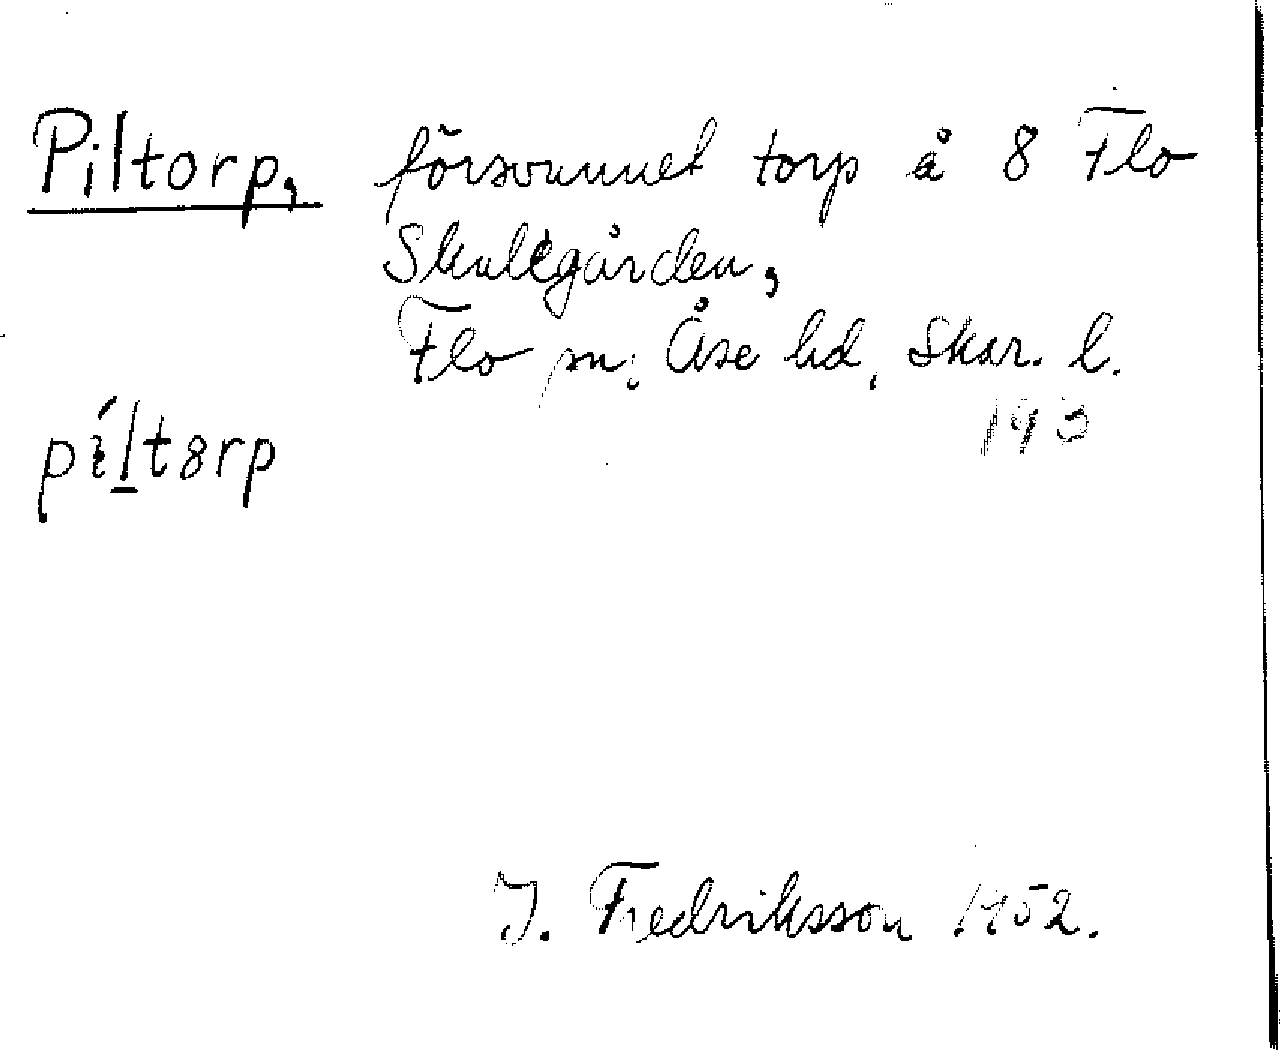 Piltorp, försvunnet torp å 8 Flo
Skulegården,
Flo sn, Åse hd, Skar. l.
193
píltorp
J. Fredriksson 1952.